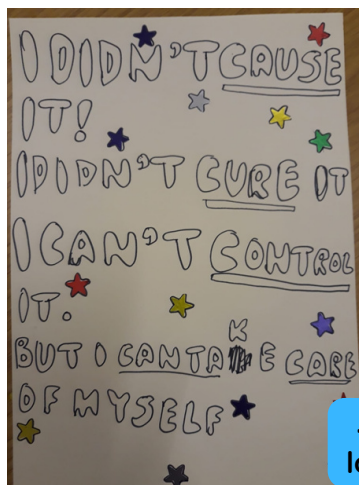 I DIDN'T CAUSE
IT!
I DIDN'T CURE IT
I CAN'T CONTROL
IT.
BUT I CAN TAKE CARE
OF MYSELF